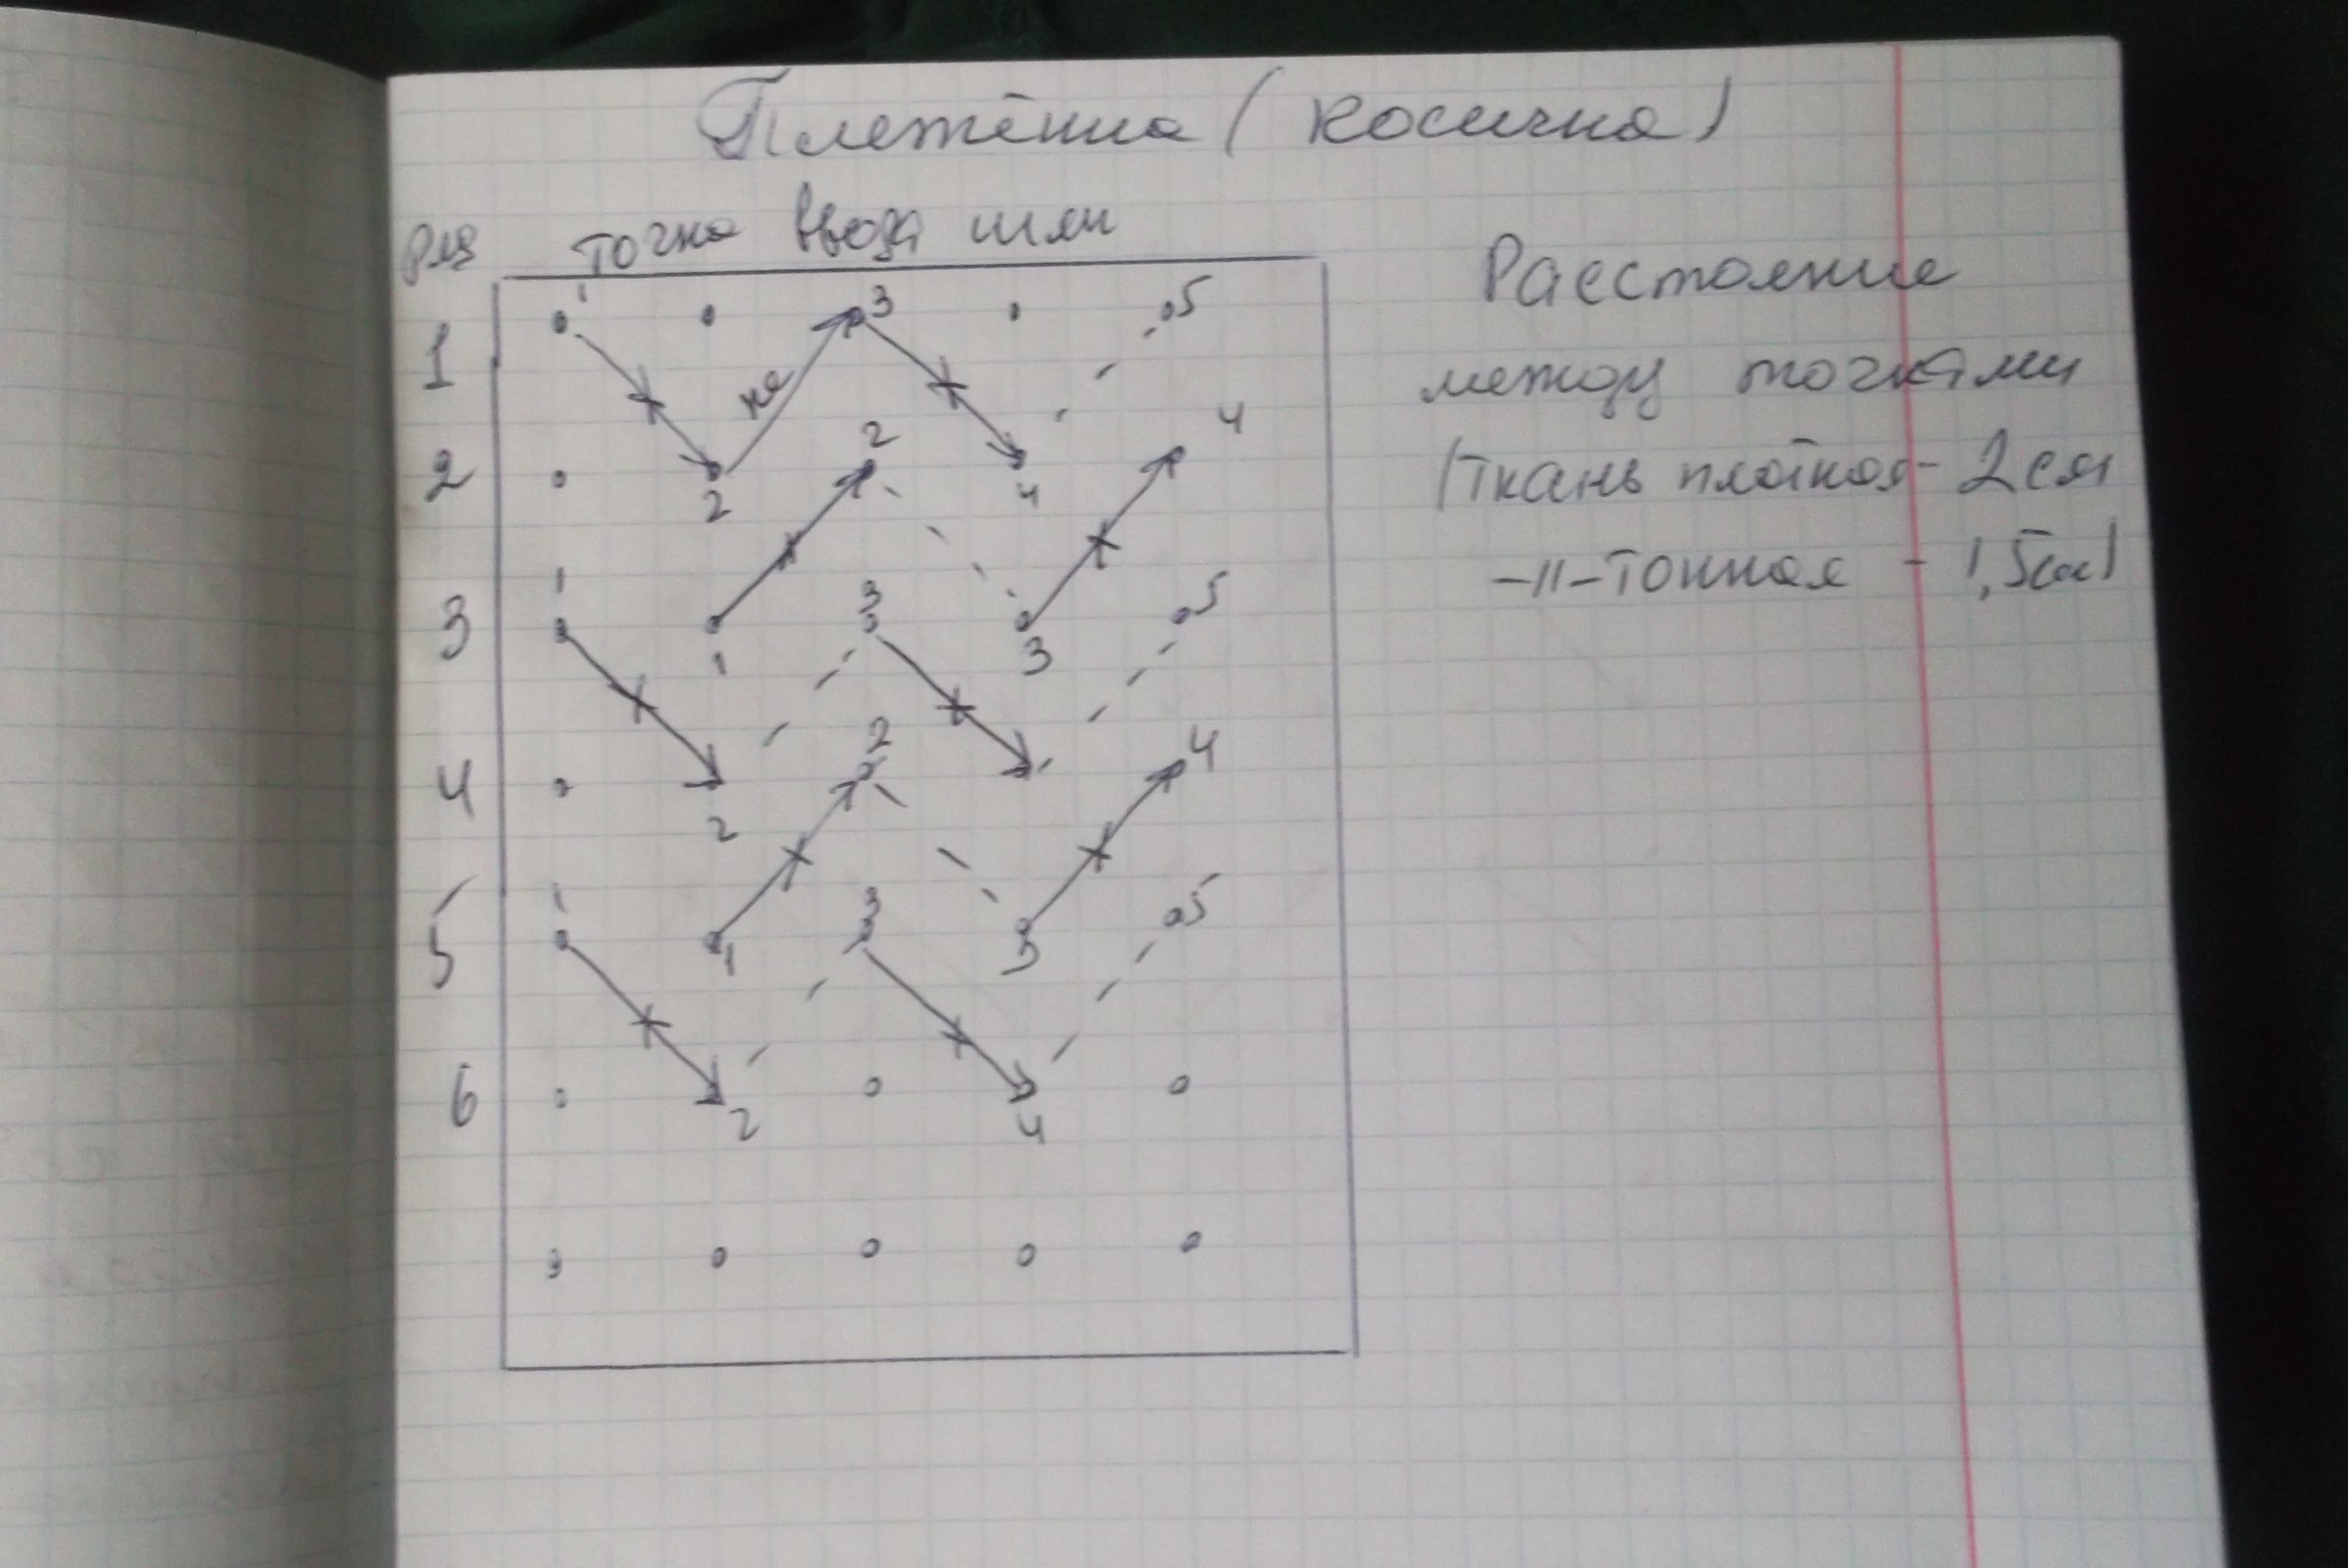 Плетёнка (косичка)
Ряд точка ввода иглы
1 3 5
1 не
2 4
2 2 4
1 3 5
3 1 3
2 4
4
2
1 3 5
5 1 3
6 2 4
Расстояние
между точками
(ткань плотная - 2 см
-//- тонкая - 1,5 см)